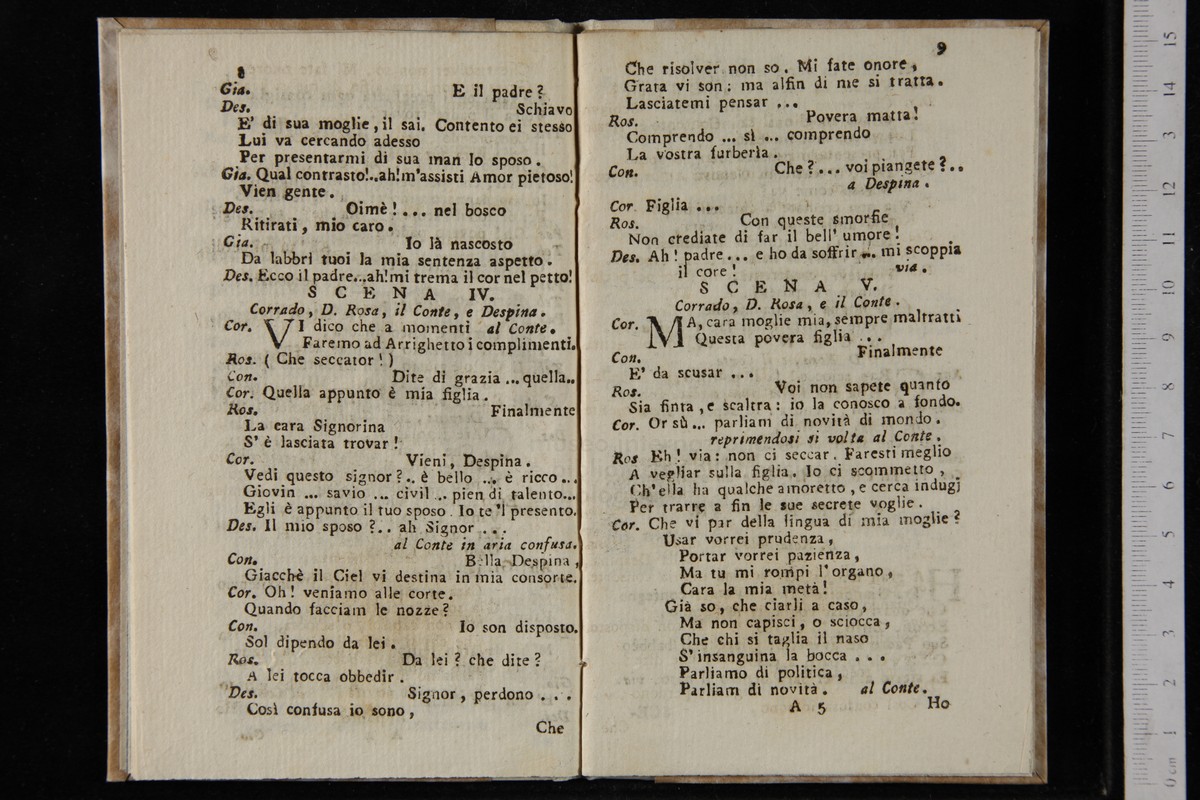 8
Gia. E il padre?
Des. Schiavo
E' di sua moglie, il sai. Contento ei stesso
Lui va cercando adesso
Per presentarmi di sua man lo sposo.
Gia. Qual contrasto!..ah!m'assisti Amor pietoso!
Vien gente.
Des. Oimè!... nel bosco
Ritirati, mio caro.
Gia. Io là nascosto
Da labbri tuoi la mia sentenza aspetto.
Des. Ecco il padre...ah!mi trema il cor nel petto!
SCENA IV.
Corrado, D. Rosa, il Conte, e Despina.
Cor. VI dico che a momenti al Conte.
Faremo ad Arrighetto i complimenti.
Ros. ( Che seccator! )
Con. Dite di grazia ... quella..
Cor. Quella appunto è mia figlia.
Ros. Finalmente
La cara Signorina
S' è lasciata trovar!
Cor. Vieni, Despina.
Vedi questo signor?.. è bello ... è ricco...
Giovin ... savio ... civil ... pien di talento...
Egli è appunto il tuo sposo. Io te'l presento.
Des. Il mio sposo?.. ah Signor ...
al Conte in aria confusa.
Con. Bella Despina,
Giacchè il Ciel vi destina in mia consorte.
Cor. Oh! veniamo alle corte.
Quando facciam le nozze?
Con. Io son disposto.
Sol dipendo da lei.
Ros. Da lei? che dite?
A lei tocca obbedir.
Des. Signor, perdono ...
Così confusa io sono,
Che
9
Che risolver non so. Mi fate onore,
Grata vi son: ma alfin di me si tratta.
Lasciatemi pensar ...
Ros. Povera matta!
Comprendo ... sì ... comprendo
La vostra furberìa.
Con. Che?... voi piangete?..
a Despina.
Cor. Figlia ...
Ros. Con queste smorfie
Non crediate di far il bell' umore!
Des. Ah! padre... e ho da soffrir ... mi scoppia
il core! via.
SCENA V.
Corrado, D. Rosa, e il Conte.
Cor. MA, cara moglie mia, sempre maltratti
Questa povera figlia ...
Con. Finalmente
E' da scusar ...
Ros. Voi non sapete quanto
Sia finta, e scaltra: io la conosco a fondo.
Cor. Or sù... parliam di novità di mondo.
reprimendosi si volta al Conte.
Ros Eh! via: non ci seccar. Faresti meglio
A vegliar sulla figlia. Io ci scommetto,
Ch'ella ha qualche amoretto, e cerca indugj
Per trarre a fin le sue secrete voglie.
Cor. Che vi par della lingua di mia moglie?
Usar vorrei prudenza,
Portar vorrei pazienza,
Ma tu mi rompi l'organo,
Cara la mia metà!
Già so, che ciarli a caso,
Ma non capisci, o sciocca,
Che chi si taglia il naso
S'insanguina la bocca ...
Parliamo di politica,
Parliam di novità. al Conte.
A 5 Ho
0 cm 1 2 3 4 5 6 7 8 9 10 11 12 13 14 15